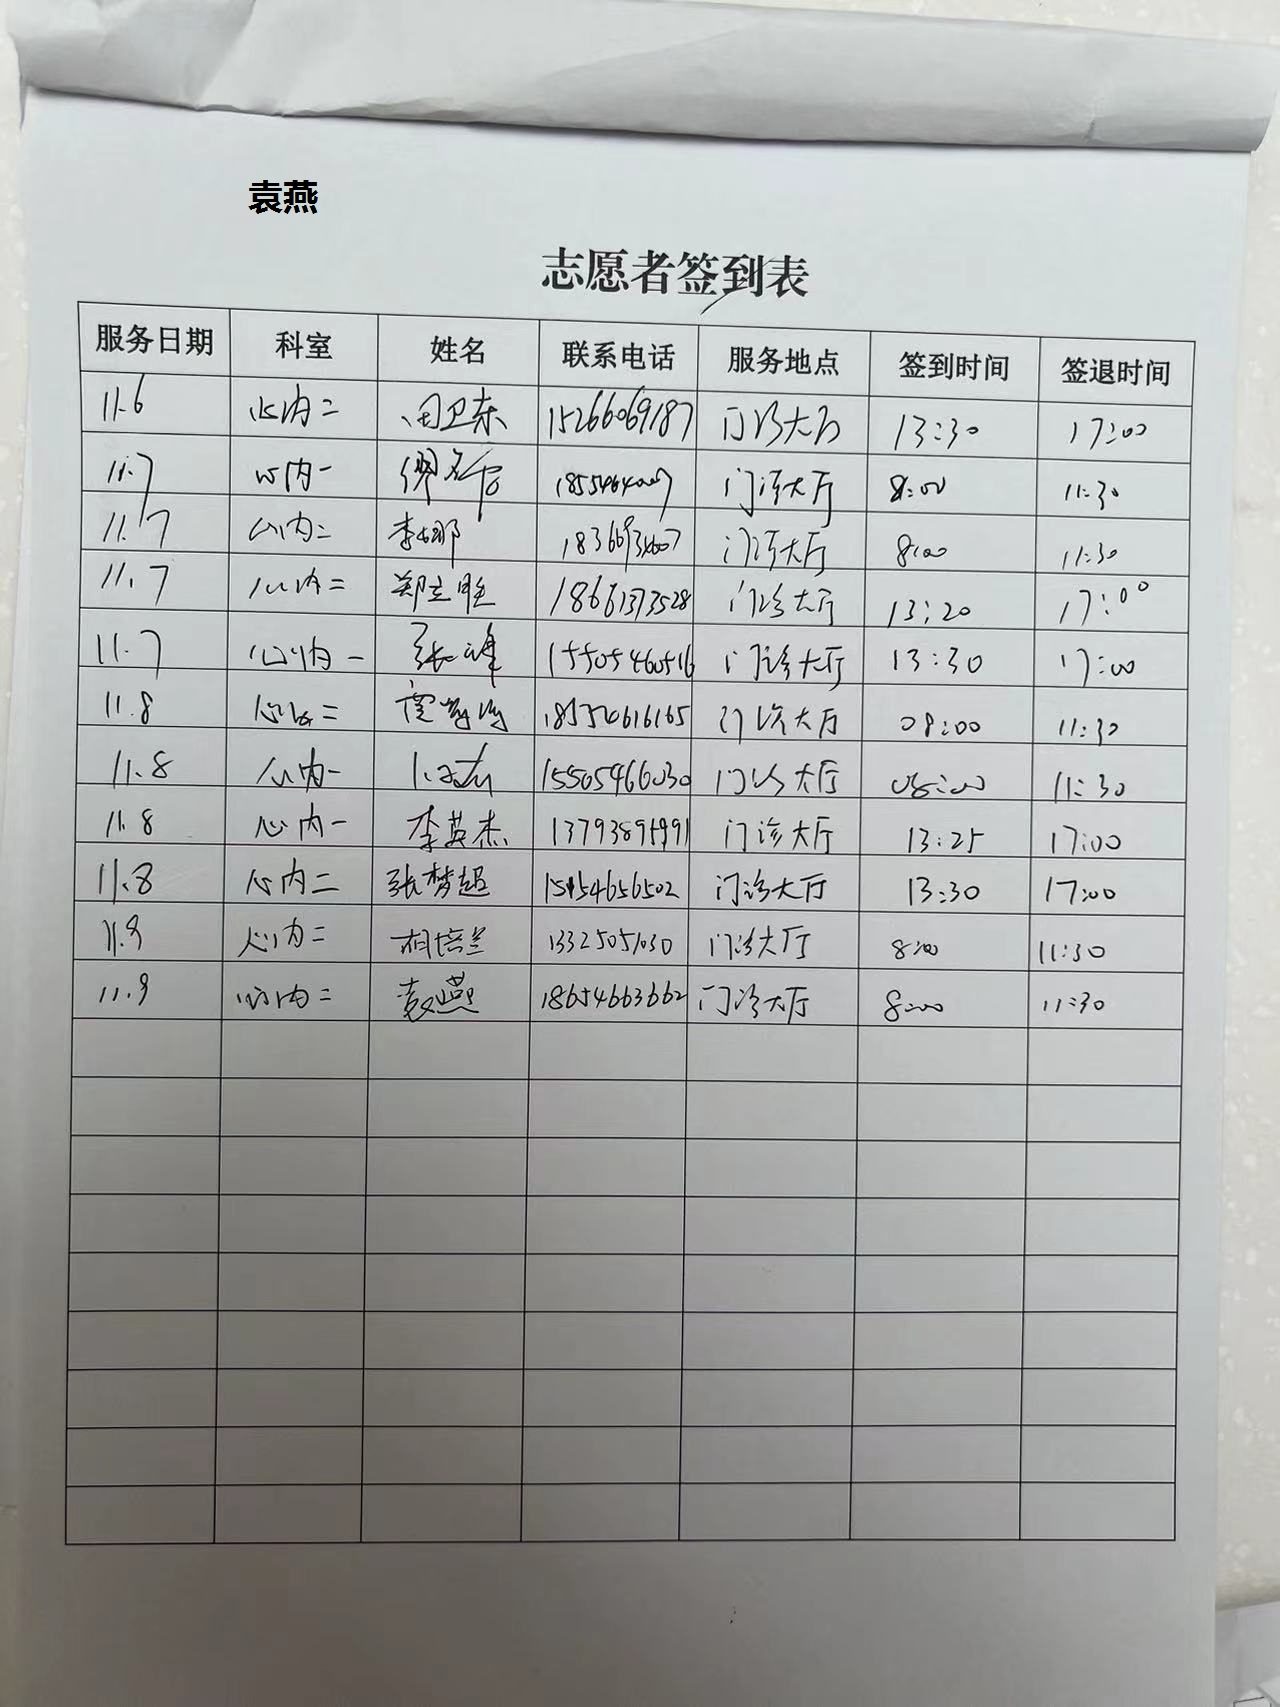 袁燕
志愿者签到表
服务日期 科室 姓名 联系电话 服务地点 签到时间 签退时间
11.6 心内二 田卫东 15266069187 门诊大厅 13:30 17:00
11.7 心内一 门诊大厅 8:00 11:30
11.7 心内二 李娜 门诊大厅 8:00 11:30
11.7 心内二 郑立胜 18661373528 门诊大厅 13:20 17:00
11.7 心内一 张峰 15505460516 门诊大厅 13:30 17:00
11.8 心内二 18554616165 门诊大厅 08:00 11:30
11.8 心内一 15505466030 门诊大厅 08:00 11:30
11.8 心内一 李英杰 13793895991 门诊大厅 13:25 17:00
11.8 心内二 张梦超 15154656502 门诊大厅 13:30 17:00
11.9 心内二 相培兰 13325051030 门诊大厅 8:00 11:30
11.9 心内二 袁燕 18654663662 门诊大厅 8:00 11:30